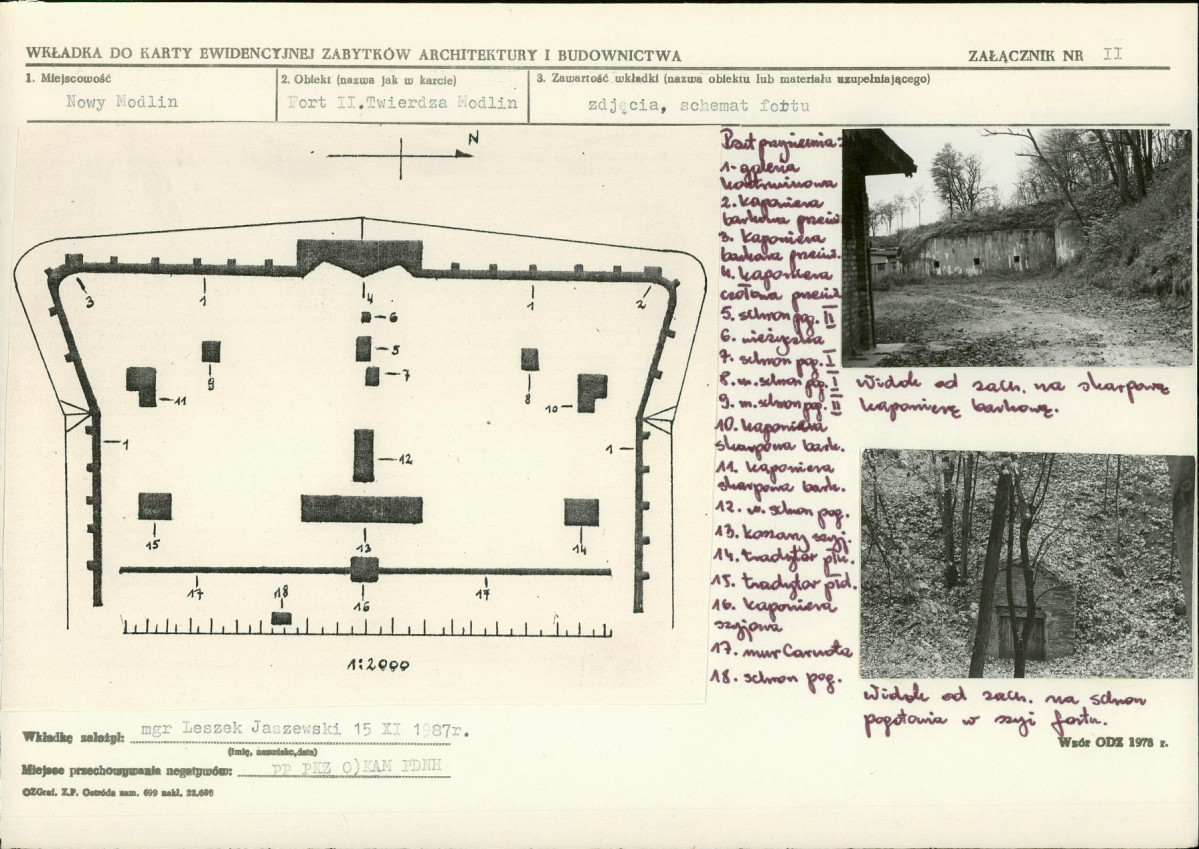 WKŁADKA DO KARTY EWIDENCYJNEJ ZABYTKÓW ARCHITEKTURY I BUDOWNICTWA
ZAŁĄCZNIK NR II
1. Miejscowość
Nowy Modlin
2. Obiekt (nazwa jak w karcie)
Fort II.Twierdza Modlin
3. Zawartość wkładki (nazwa obiektu lub materiału uzupełniającego)
zdjęcia, schemat fortu
N
3 1 4 1 2
6
5
9 7 8
11 10
1 1
12
15 13 14
17 18 16 17
1:2000
1- galeria
kontrminowa
2. kaponiera
barkowa przeciw.
3. kaponiera
barkowa przeciw.
4. kaponiera
czołowa przeciw.
5. schron pog. II
6.
7. schron pog. I
8. m. schron pog. I
9. m. schron pog. II
10. kaponiera
skarpowa bark.
11. kaponiera
skarpowa bark.
12. w. schron pog.
13. koszary szyj.
14. tradytor płn.
15. tradytor płd.
16. kaponiera
szyjowa
17. mur Carnota
18. schron pog.
Widok od zach. na skarpową
kaponierę barkową.
Widok od zach. na schron
pogotowia w szyi fortu.
Wkładkę założył: mgr Leszek Jaszewski 15 XI 1987r.
(imię, nazwisko, data)
Miejsce przechowywania negatywów: PP PKZ O)KAM PDNH
Wzór ODZ 1978 r.
©ZGraf. Z.P. Ostróda zam. 699 nakł. 22.600